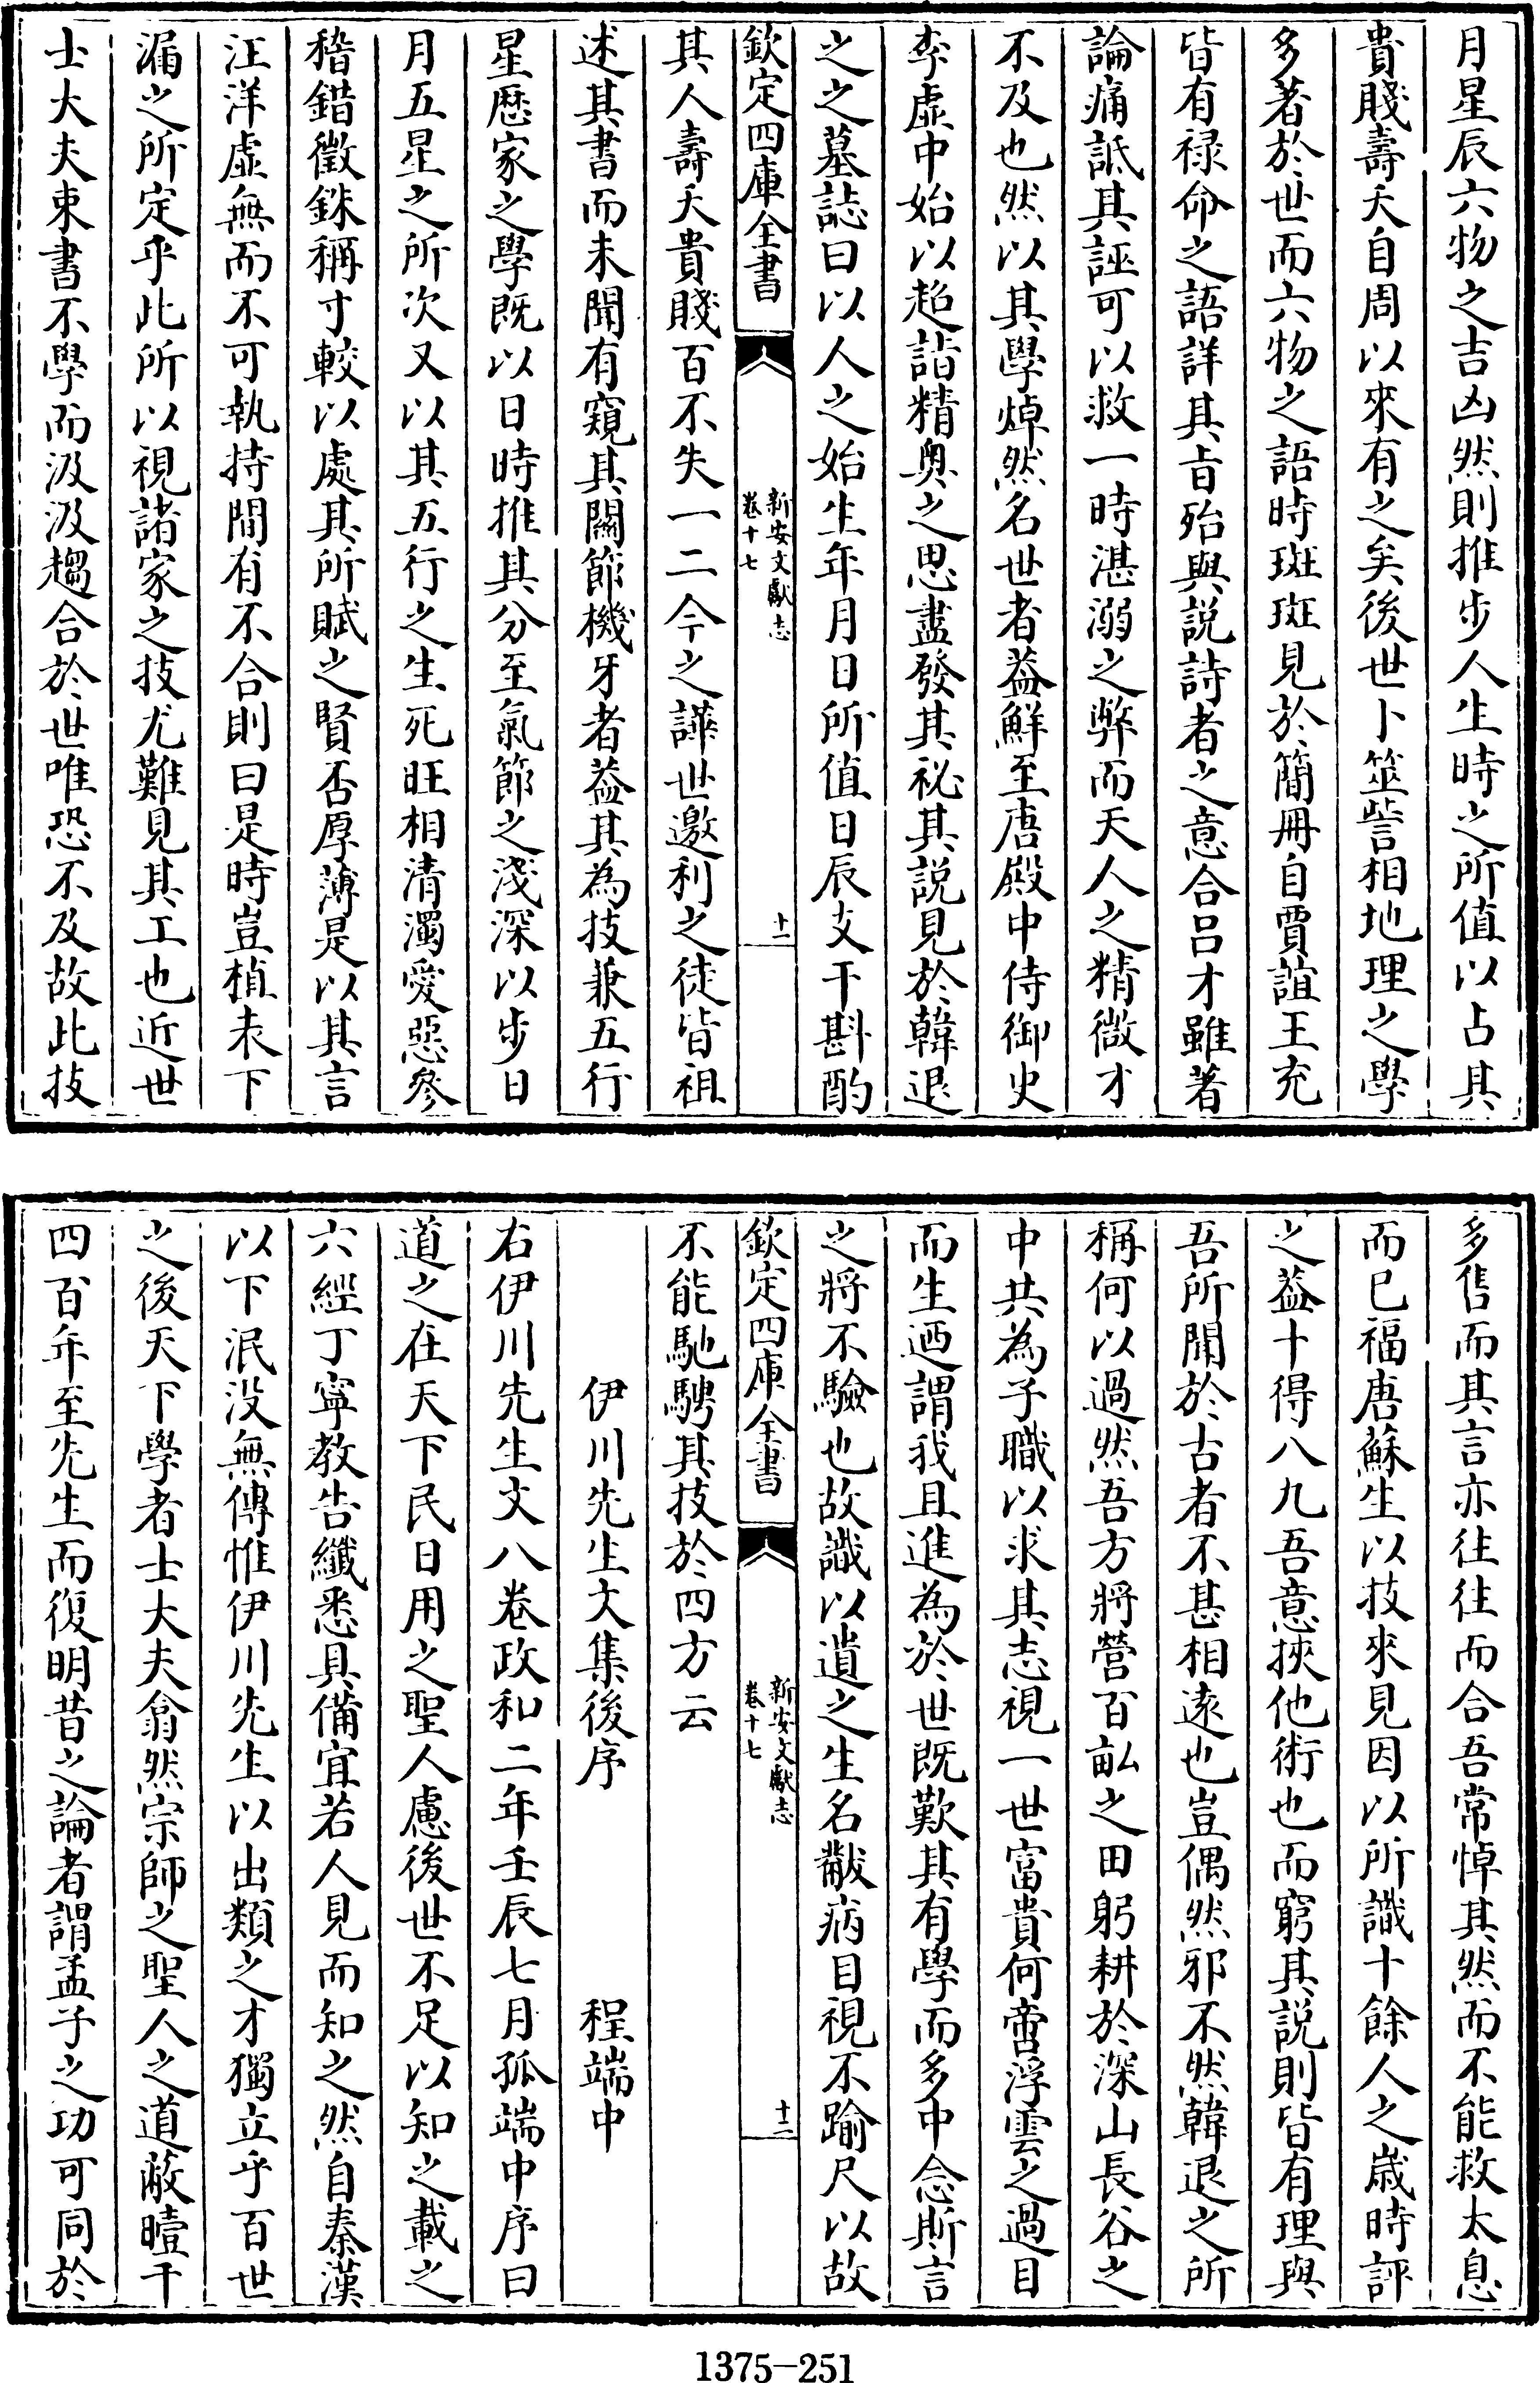 月星辰六物之吉凶然則推步人生時之所值以占其
貴賤壽夭自周以來有之矣後世卜筮訾相地理之學
多著於世而六物之語時斑斑見於簡冊自賈誼王充
皆有禄命之語詳其㫖殆與説詩者之意合吕才雖著
論痛詆其誣可以救一時湛溺之弊而天人之精微才
不及也然以其學焯然名世者益鮮至唐殿中侍御史
李虚中始以超詣精奥之思盡發其祕其説見於韓退
之之墓誌曰以人之始生年月日所值日辰支干斟酌
欽定四庫全書
新安文獻志
卷十七
十一
其人壽夭貴賤百不失一二今之譁世邀利之徒皆祖
述其書而未聞有窺其關節機牙者葢其為技兼五行
星歴家之學既以日時推其分至氣節之淺深以步日
月五星之所次又以其五行之生死旺相清濁愛惡參
稽錯徵銖稱寸較以處其所賦之賢否厚薄是以其言
汪洋虚無而不可執持間有不合則曰是時豈植表下
漏之所定乎此所以視諸家之技尤難見其工也近世
士大夫束書不學而汲汲趨合於世唯恐不及故此技
多售而其言亦往往而合吾常悼其然而不能救太息
而已福唐蘇生以技來見因以所識十餘人之歲時評
之葢十得八九吾意挾他術也而窮其説則皆有理與
吾所聞於古者不甚相遠也豈偶然邪不然韓退之所
稱何以過然吾方將營百畝之田躬耕於深山長谷之
中共為子職以求其志視一世富貴何啻浮雲之過目
而生迺謂我且進為於世既歎其有學而多中念斯言
之將不驗也故識以遺之生名黻病目視不踰尺以故
欽定四庫全書
新安文獻志
卷十七
十二
不能馳騁其技於四方云
伊川先生文集後序
程端中
右伊川先生文八卷政和二年壬辰七月孤端中序曰
道之在天下民日用之聖人慮後世不足以知之載之
六經丁寧教告纖悉具備宜若人見而知之然自秦漢
以下泯没無傳惟伊川先生以出類之才獨立乎百世
之後天下學者士大夫翕然宗師之聖人之道蔽曀千
四百年至先生而復明昔之論者謂孟子之功可同於
1375-251